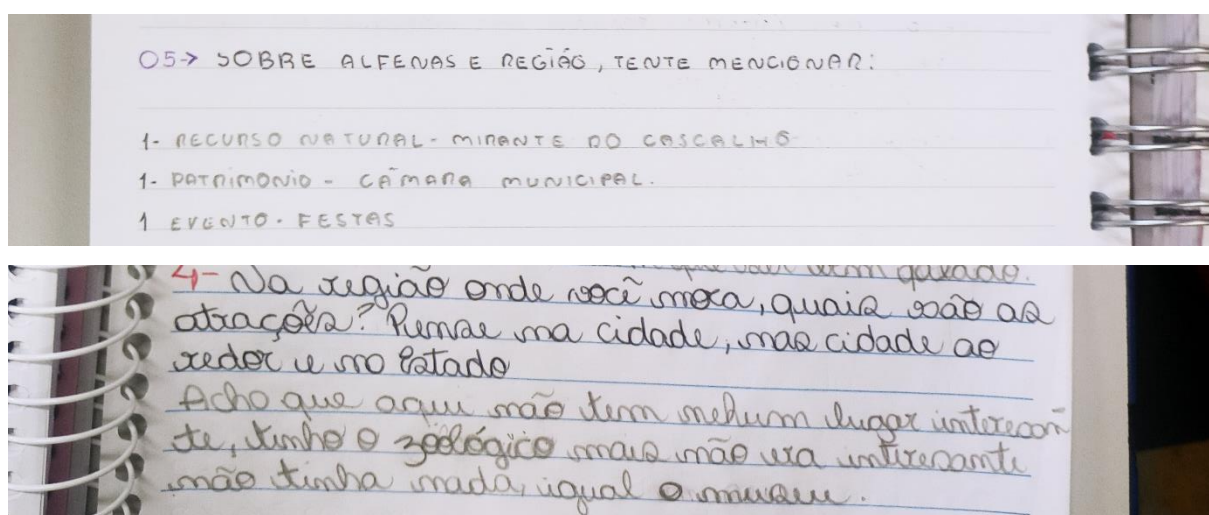 05-> SOBRE ALFENAS E REGIÃO, TENTE MENCIONAR:
1- RECURSO NATURAL - MIRANTE DO CASCALHO
1- PATRIMONIO - CÂMARA MUNICIPAL.
1 EVENTO - FESTAS
que vai
4- Na região onde você mora, quais são as
atrações? Pense na cidade, nas cidade ao
redor e no Estado
Acho que aqui não tem nehum lugar interesan
te, tinha o zoológico mais não era intiresante
não tinha nada, igual o museu.